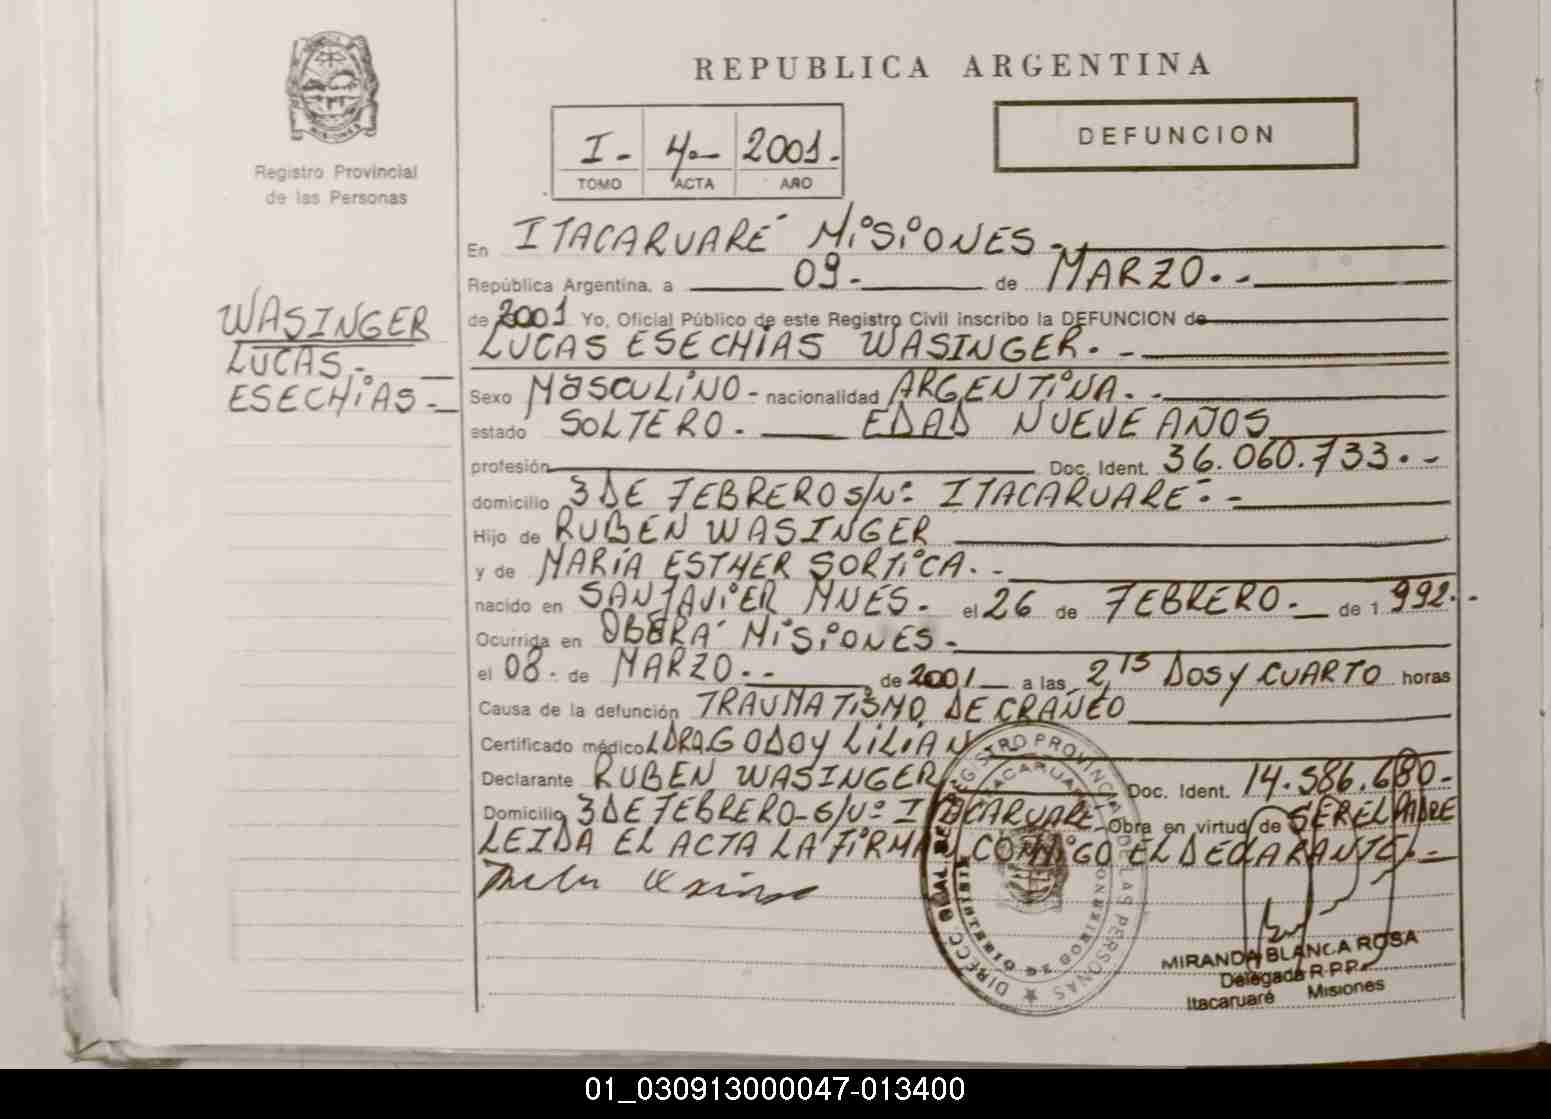 REPUBLICA ARGENTINA
DEFUNCION
I- 4- 2001.-
TOMO ACTA AÑO
Registro Provincial
de las Personas
WASINGER
LUCAS.-
ESECHIAS.-
En ITACARUARÉ MISIONES.-
República Argentina, a 09.- de MARZO.-
de 2001 Yo, Oficial Público de este Registro Civil inscribo la DEFUNCION de
LUCAS ESECHIAS WASINGER.-
Sexo MASCULINO- nacionalidad ARGENTINA.-
estado SOLTERO.- EDAD NUEVE AÑOS
profesión Doc. Ident. 36.060.733.-
domicilio 3 DE FEBRERO S/Nº ITACARUARE.-
Hijo de RUBEN WASINGER
y de MARÍA ESTHER SORTICA.-
nacido en SAN JAVIER MNES.- el 26 de FEBRERO.- de 1.992.-
Ocurrida en OBERÁ MISIONES.-
el 08.- de MARZO.- de 2001 a las 2,15 DOS y CUARTO horas
Causa de la defunción TRAUMATISMO DE CRANEO
Certificado médico DRA. GODOY LILIAN
Declarante RUBEN WASINGER Doc. Ident. 14.586.680-
Domicilio 3 DE FEBRERO- S/Nº ITACARUARE Obra en virtud de SER EL PADRE
LEIDA EL ACTA LA FIRMA CONMIGO EL DECLARANTE.-
MIRANDA BLANCA ROSA
Delegada R.P.P.
Itacaruaré Misiones
01_030913000047-013400